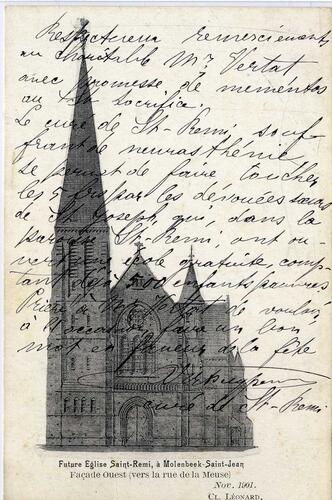 Respectueux remerciements
au charitable Mr Vertat
avec promesse de mémentos
au St Sacrifice.
Le curé de St-Remi, souf-
frant de neurasthénie,
se permet de faire toucher
les 5 frs par les dévouées sœurs
de St Joseph qui, dans la
paroisse St-Remi, ont ou-
vert une école gratuite, comp-
tant déjà 500 enfants pauvres
Prière à Mr Vertat de vouloir
à l'occasion, faire un bon
mot en faveur de la fête
curé de St-Remi
Future Eglise Saint-Remi, à Molenbeek-Saint-Jean
Façade Ouest (vers la rue de la Meuse)
Nov. 1901.
CL. LÉONARD.